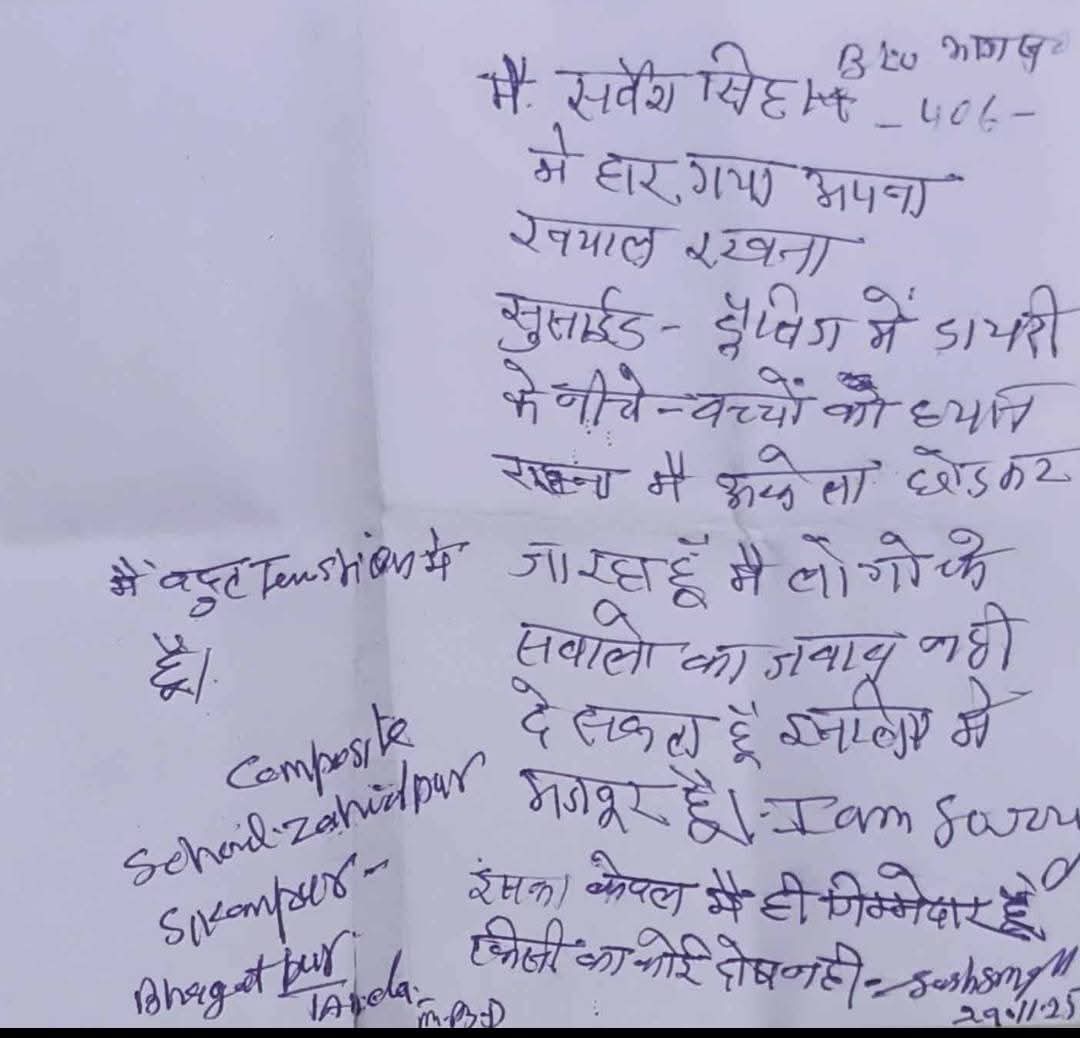 मै सर्वेश सिंह - 406 -
मे हार गया अपना
ख्याल रखना
सुसाईड - में डायरी
के नीचे - बच्चों को ध्यान
रखना मै अकेला छोडकर
जा रहा हूँ मै लोगो के
सवालो का जवाब नही
दे सकता हूँ मे
मजबूर हूँ। - I am Sorry
इसका केवल मै ही जिम्मेदार हूँ
किसी का कोई दोष नही -
29.11.25
मै बहुत Tenshion मे
हूँ।
Composite
Zahidpur
Sikampur -
Bhagatpur
Tanda